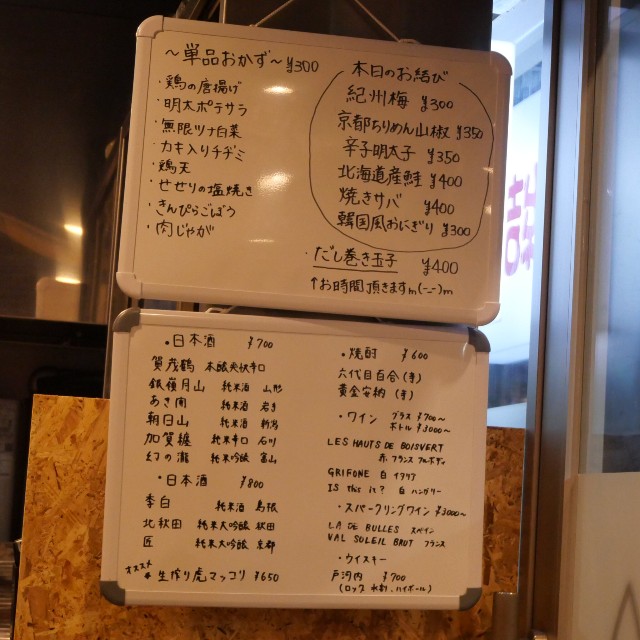 ～単品おかず～ ¥300
・鶏の唐揚げ
・明太ポテサラ
・無限ツナ白菜
・カキ入りチヂミ
・鶏天
・せせりの塩焼き
・きんぴらごぼう
・肉じゃが
本日のお結び
紀州梅 ¥300
京都ちりめん山椒 ¥350
辛子明太子 ¥350
北海道産鮭 ¥400
焼きサバ ¥400
韓国風おにぎり ¥300
・だし巻き玉子 ¥400
↑お時間頂きますm(-_-)m
・日本酒 ¥700
賀茂鶴 本醸 辛口
銀嶺月山 純米酒 山形
あさ開 純米酒 岩手
朝日山 純米酒 新潟
加賀 純米辛口 石川
幻の瀧 純米吟醸 富山
・日本酒 ¥800
李白 純米酒 島根
北秋田 純米大吟醸 秋田
匠 純米大吟醸 京都
オススメ 生搾り虎マッコリ ¥650
・焼酎 ¥600
六代目百合(芋)
黄金安納(芋)
・ワイン グラス ¥700～
ボトル ¥3000～
LES HAUTS DE BOISVERT
赤 フランス フルボディ
GRIFONE 白 イタリア
IS this it? 白 ハンガリー
・スパークリングワイン ¥3000～
LA DE BULLES スペイン
VAL SOLEIL BRUT フランス
・ウイスキー
戸河内 ¥700
(ロック、水割、ハイボール)